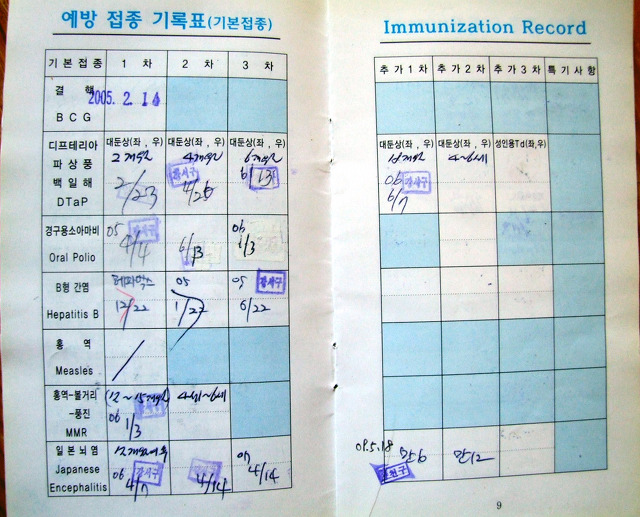 예방 접종 기록표(기본접종)
기본접종 1 차 2 차 3 차
결 핵 2005. 2. 16
BCG
디프테리아 대둔상(좌, 우) 대둔상(좌, 우) 대둔상(좌, 우)
파 상 풍 2개월 4개월 6개월
백 일 해 2/23 4/25 강서구 6/13
DTaP
경구용소아마비 05 강서구 06
Oral Polio 4/4 6/13 1/3
B형 간염 헤파박스 05 05 강서구
Hepatitis B 12/22 1/22 6/22
홍 역
Measles
홍역-볼거리 (12~15개월) 4세~6세
-풍진 06
MMR 1/3
일본 뇌염 07
Japanese 06 강서구 4/14
Encephalitis 4/7 4/14
Immunization Record
추가1차 추가2차 추가3차 특기사항
대둔상(좌, 우) 대둔상(좌, 우) 성인용Td(좌,우)
18개월 4~6세
06 강서구
6/7
09.5.18 만6 만12
9